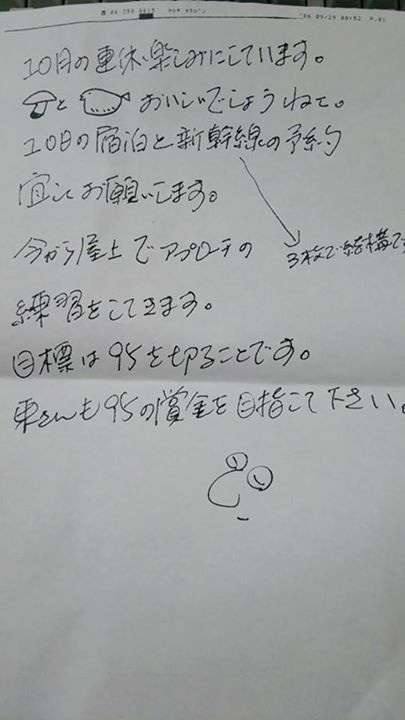 '06 09/29 08:52 P.01
10月の連休楽しみにしています。
と おいしいでしょうねえ。
10日の宿泊と新幹線の予約
宜しくお願いします。
3枚で結構です
今から屋上でアプローチの
練習をしてきます。
目標は95を切ることです。
東さんも95の賞金を目指して下さい。